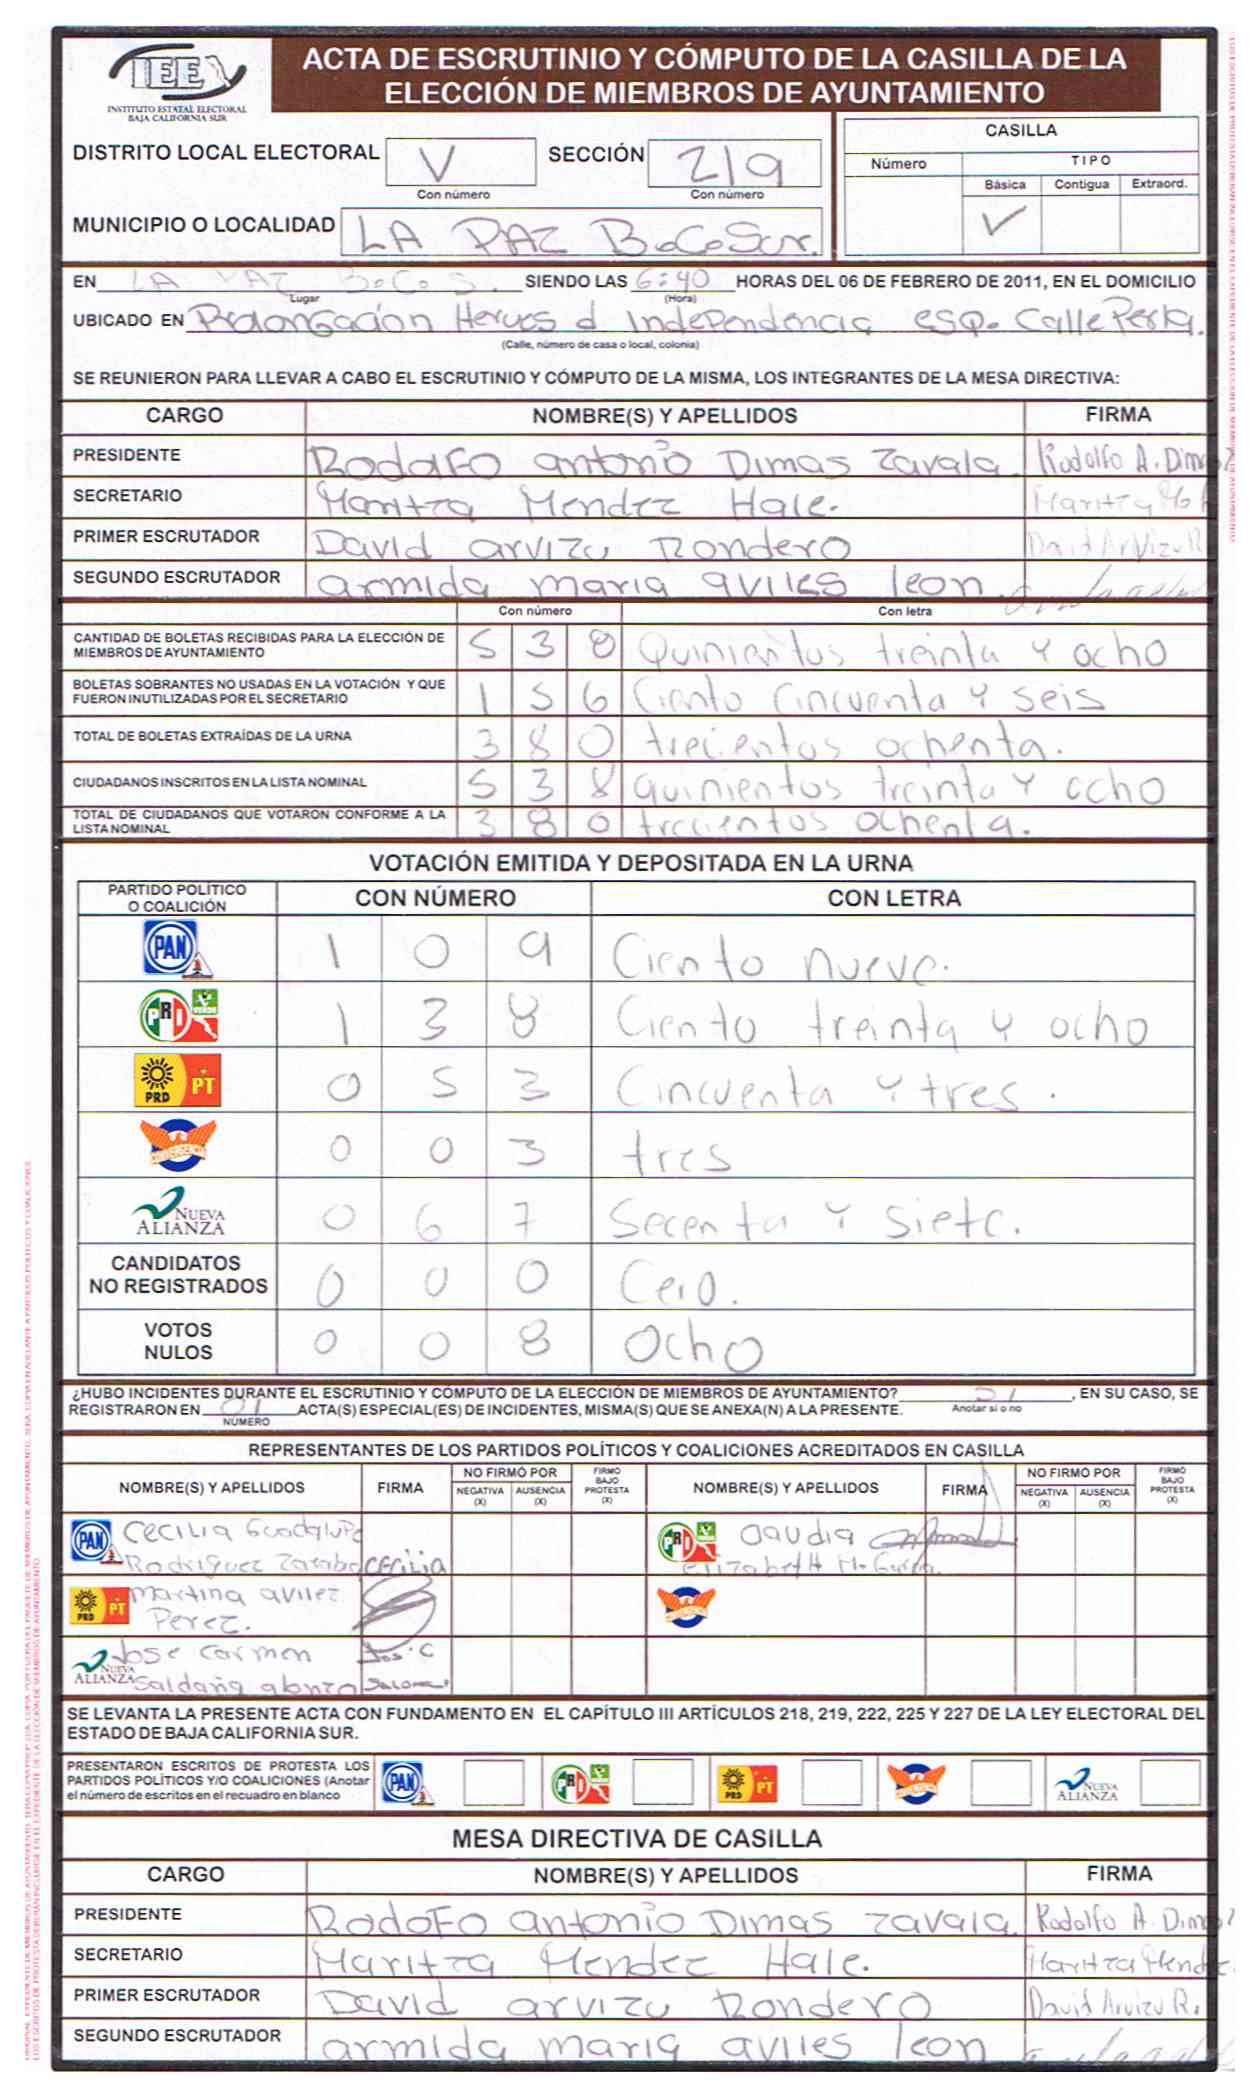 IEE
INSTITUTO ESTATAL ELECTORAL
BAJA CALIFORNIA SUR
ACTA DE ESCRUTINIO Y CÓMPUTO DE LA CASILLA DE LA
ELECCIÓN DE MIEMBROS DE AYUNTAMIENTO
DISTRITO LOCAL ELECTORAL V SECCIÓN 219
Con número Con número
MUNICIPIO O LOCALIDAD LA PAZ B.C.Sur.
CASILLA
Número TIPO
Básica Contigua Extraord.
✓
EN LA PAZ B.C.S. SIENDO LAS 6:40 HORAS DEL 06 DE FEBRERO DE 2011, EN EL DOMICILIO
Lugar (Hora)
UBICADO EN Prolongación Heroes d Independencia esq. Calle Perla.
(Calle, número de casa o local, colonia)
SE REUNIERON PARA LLEVAR A CABO EL ESCRUTINIO Y CÓMPUTO DE LA MISMA, LOS INTEGRANTES DE LA MESA DIRECTIVA:
CARGO NOMBRE(S) Y APELLIDOS FIRMA
PRESIDENTE Rodolfo antonio Dimas Zavala. Rodolfo A. Dimas
SECRETARIO Maritza Mendez Hale. Maritza
PRIMER ESCRUTADOR David arvizu Rondero David Arvizu R
SEGUNDO ESCRUTADOR armida maria aviles leon.
Con número Con letra
CANTIDAD DE BOLETAS RECIBIDAS PARA LA ELECCIÓN DE
MIEMBROS DE AYUNTAMIENTO 5 3 8 Quinientos treinta y ocho
BOLETAS SOBRANTES NO USADAS EN LA VOTACIÓN Y QUE
FUERON INUTILIZADAS POR EL SECRETARIO 1 5 6 Ciento Cincuenta y seis
TOTAL DE BOLETAS EXTRAÍDAS DE LA URNA 3 8 0 trecientos ochenta.
CIUDADANOS INSCRITOS EN LA LISTA NOMINAL 5 3 8 quinientos treinta y ocho
TOTAL DE CIUDADANOS QUE VOTARON CONFORME A LA
LISTA NOMINAL 3 8 0 trecientos ochenta.
VOTACIÓN EMITIDA Y DEPOSITADA EN LA URNA
PARTIDO POLÍTICO
O COALICIÓN CON NÚMERO CON LETRA
PAN 1 0 9 Ciento nueve.
PRI VERDE 1 3 8 Ciento treinta y ocho
PRD PT 0 5 3 Cincuenta y tres.
CONVERGENCIA 0 0 3 tres
NUEVA ALIANZA 0 6 7 Secenta y siete.
CANDIDATOS
NO REGISTRADOS 0 0 0 Cero.
VOTOS
NULOS 0 0 8 Ocho
¿HUBO INCIDENTES DURANTE EL ESCRUTINIO Y CÓMPUTO DE LA ELECCIÓN DE MIEMBROS DE AYUNTAMIENTO? SI, EN SU CASO, SE
REGISTRARON EN 01 ACTA(S) ESPECIAL(ES) DE INCIDENTES, MISMA(S) QUE SE ANEXA(N) A LA PRESENTE. Anotar sí o no
NÚMERO
REPRESENTANTES DE LOS PARTIDOS POLÍTICOS Y COALICIONES ACREDITADOS EN CASILLA
NOMBRE(S) Y APELLIDOS FIRMA NO FIRMÓ POR NEGATIVA (X) AUSENCIA (X) FIRMÓ BAJO PROTESTA (X) NOMBRE(S) Y APELLIDOS FIRMA NO FIRMÓ POR NEGATIVA (X) AUSENCIA (X) FIRMÓ BAJO PROTESTA (X)
PAN Cecilia Guadalupe PRI Claudia
Rodriguez cecilia Elizabeth M.
PRD PT martina aviles
Perez.
NUEVA ALIANZA Jose carmen Jose C
Saldaña
SE LEVANTA LA PRESENTE ACTA CON FUNDAMENTO EN EL CAPÍTULO III ARTÍCULOS 218, 219, 222, 225 Y 227 DE LA LEY ELECTORAL DEL
ESTADO DE BAJA CALIFORNIA SUR.
PRESENTARON ESCRITOS DE PROTESTA LOS
PARTIDOS POLÍTICOS Y/O COALICIONES (Anotar
el número de escritos en el recuadro en blanco
PAN PRI PRD PT NUEVA ALIANZA
MESA DIRECTIVA DE CASILLA
CARGO NOMBRE(S) Y APELLIDOS FIRMA
PRESIDENTE RodoFo antonio Dimas Zavala. Rodolfo A. Dimas
SECRETARIO Maritza Mendez Hale. Maritza Mendez
PRIMER ESCRUTADOR David arvizu Rondero David Arvizu R.
SEGUNDO ESCRUTADOR armida maria aviles leon